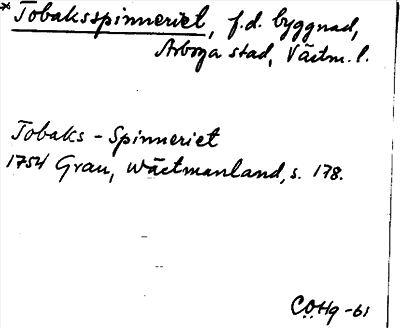 *Tobaksspinneriet, f.d. byggnad,
Arboga stad, Västm. l.
Tobaks-Spinneriet
1754 Grau, Wästmanland, s. 178.
C.O.Hg -61